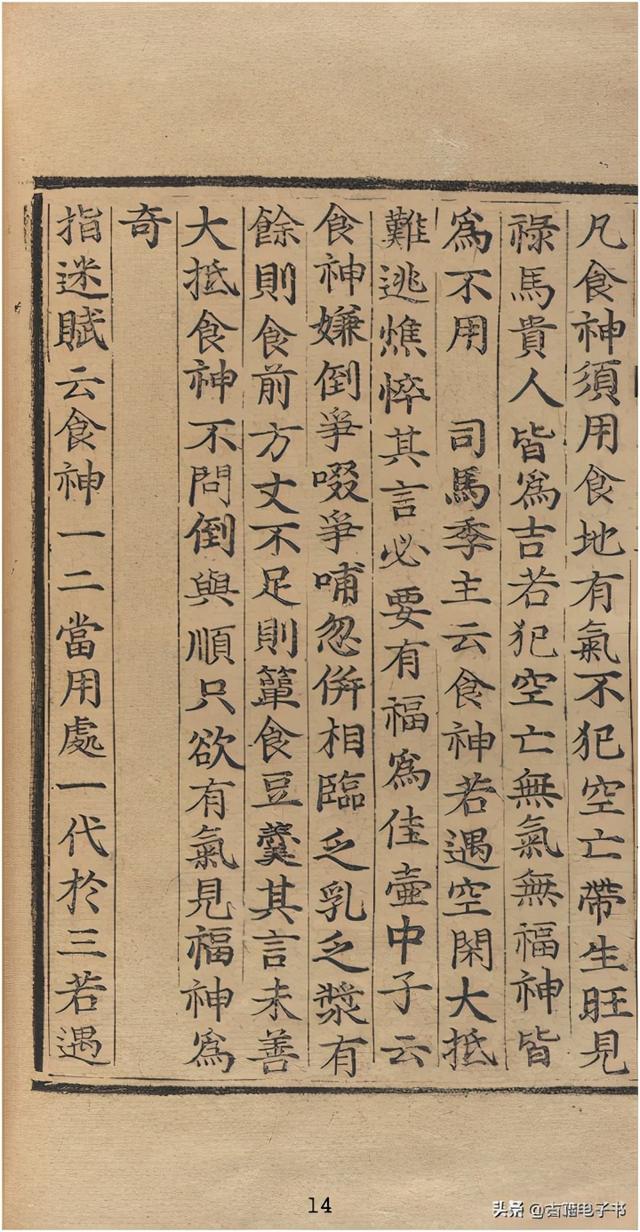 凡食神須用食地有氣不犯空亡帶生旺見
祿馬貴人皆爲吉若犯空亡無氣無福神皆
爲不用　司馬季主云食神若遇空閑大抵
難逃憔悴其言必要有福爲佳壷中子云
食神嫌倒爭啜爭哺忽併相臨乏乳乏漿有
餘則食前方丈不足則簞食豆羹其言未善
大抵食神不問倒與順只欲有氣見福神爲
奇
指迷賦云食神一二當用處一代於三若遇
14
头条 @古籍电子书